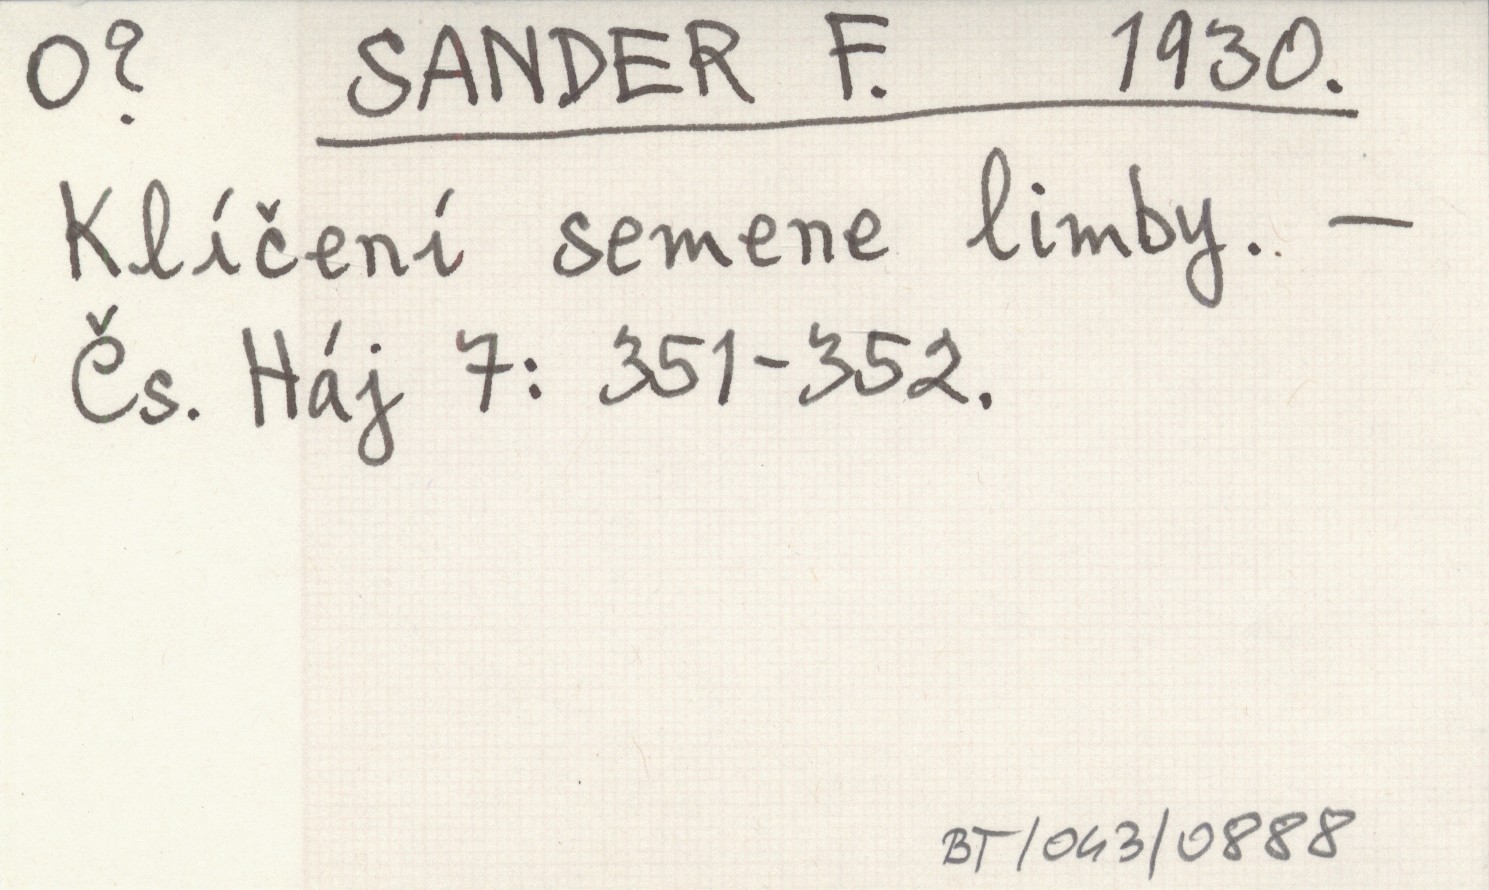 O? SANDER F. 1930.
Klíčení semene limby. —
Čs. Háj 7: 351-352.
BT/043/0888